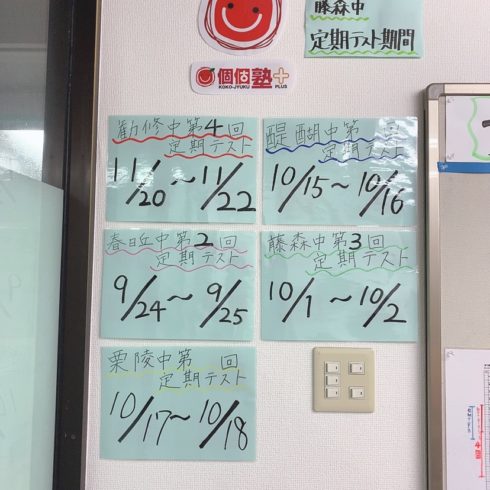 藤森中
定期テスト期間
個個塾+
KOKO-JYUKU PLUS
勧修中第4回
定期テスト
11/20〜11/22
醍醐中第 回
定期テスト
10/15〜10/16
春日丘中第2回
定期テスト
9/24〜9/25
藤森中第3回
定期テスト
10/1〜10/2
栗陵中第 回
定期テスト
10/17〜10/18